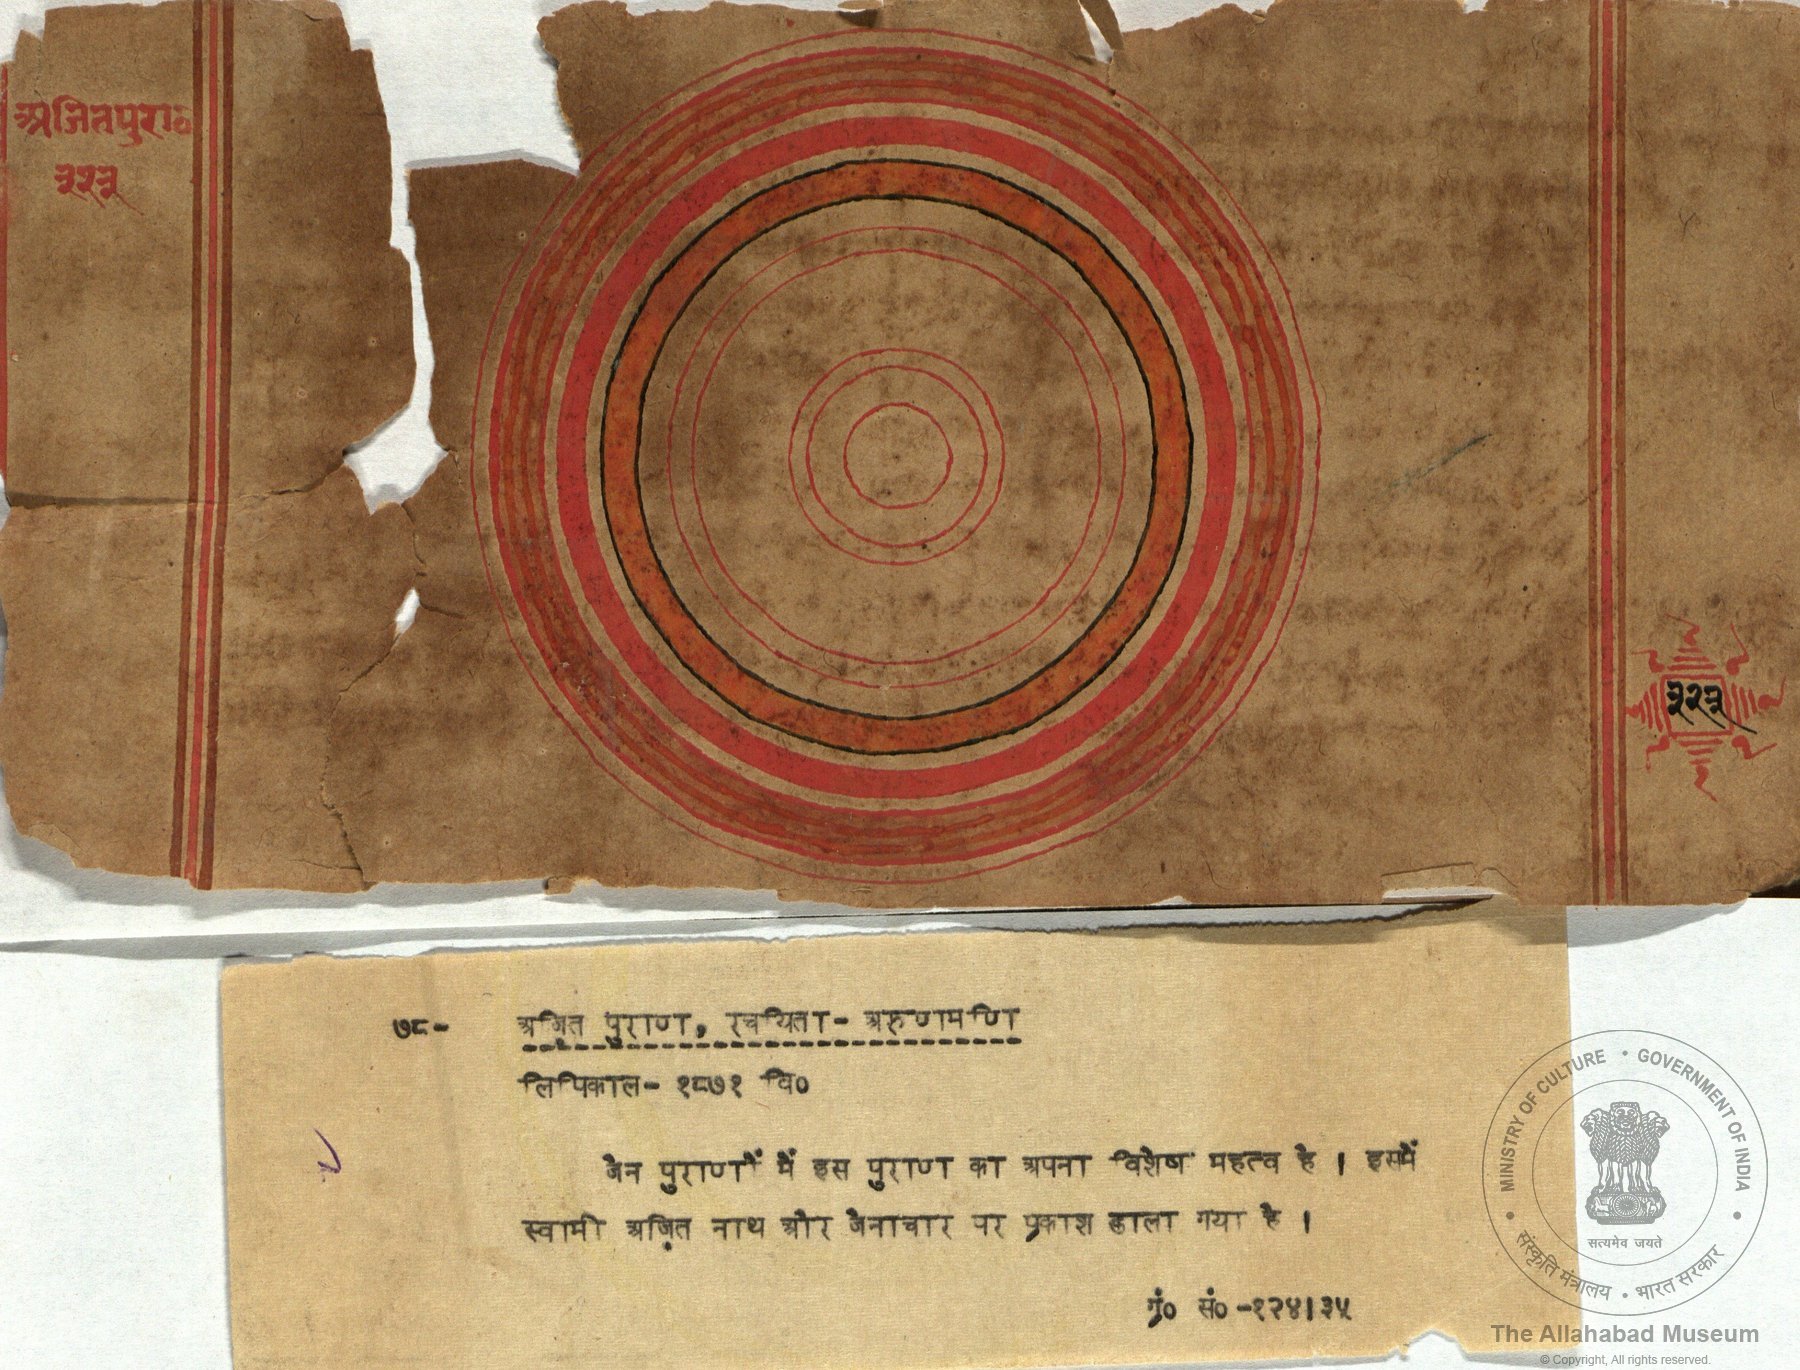 अजितपुराण
३२३
३२३
७८- अजित पुराण, रचयिता- अरुणामणि
लिपिकाल- १८७१ वि०
जैन पुराणों में इस पुराण का अपना विशेष महत्व है । इसमें
स्वामी अजित नाथ और जैनाचार पर प्रकाश डाला गया है ।
गं० सं० -१२४।३५
MINISTRY OF CULTURE • GOVERNMENT OF INDIA
सत्यमेव जयते
संस्कृति मंत्रालय • भारत सरकार
The Allahabad Museum
© Copyright, All rights reserved.